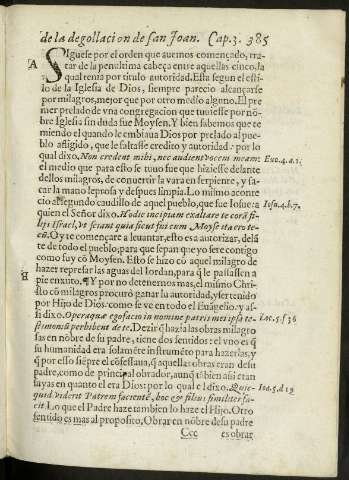 de la degollacion de san Joan. Cap.3. 385
A
SIguese por el orden que auemos començado, tra-
tar de la penultima cabeça entre aquellas cinco, la
qual tenia por titulo autoridad. Esta segun el esti-
lo de la Iglesia de Dios, siempre parecio alcançarse
por milagros, mejor que por otro medio alguno. El pre
mer prelado de vna congregacion que tuuiesse por nõ-
bre Iglesia sin duda fue Moysen. Y bien sabemos que te
miendo el quando le embiaua Dios por prelado al pue-
blo afligido, que le faltasse credito y autoridad: por lo
qual dixo, Non credent mihi, nec audient vocem meam:
Exo.4.a.1.
el medio que para esto se tuuo fue que hiziesse delante
dellos milagros, de conuertir la vara en serpiente, y sa-
car la mano leprosa y despues limpia. Lo mismo aconte
cio al segundo caudillo de aquel pueblo, que fue Iosue: a
Iosu.4.b.7.
quien el Señor dixo. Hodie incipiam exaltare te corã fi-
lijs Israel, vt sciant quia sicut fui cum Moyse ita ero te-
cũ. Oy te començare a leuantar, esto es a autorizar, delã
te de todo el pueblo, para que sepan que yo sere contigo
como fuy cõ Moysen. Esto se hizo cõ aquel milagro de
hazer represar las aguas del Iordan, para q̃ le passassen a
B
pie enxuto. ¶ Y por no detenernos mas, el mismo Chri-
sto cõ milagros procurò ganar la autoridad, y ser tenido
por Hijo de Dios: como se ve en todo el Euãgelio. y as-
si dixo. Operaquæ ego facio in nomine patris mei ipsa te-
Ioc.5.f.36
stimoniũ perhibent de te. Dezir q̃ hazia las obras milagro
sas en nõbre de su padre, tiene dos sentidos: el vno es q̃
su humanidad era solamẽte instrumẽto para hazerlas, y
q̃ por esso siẽpre el cõfessaua, q̃ aquellas obras eran de su
padre, como de principal obrador, aunq̃ tãbien assi eran
suyas en quanto el era Dios: por lo qual el dixo. Quic-
Ioa.5.d.19
quid viderit Patrem facientẽ, hoc & filius similiter fa-
cit. Lo que el Padre haze tambien lo haze el Hijo. Otro
sentido es mas al proposito, Obrar en nõbre de su padre
Ccc
es obrar